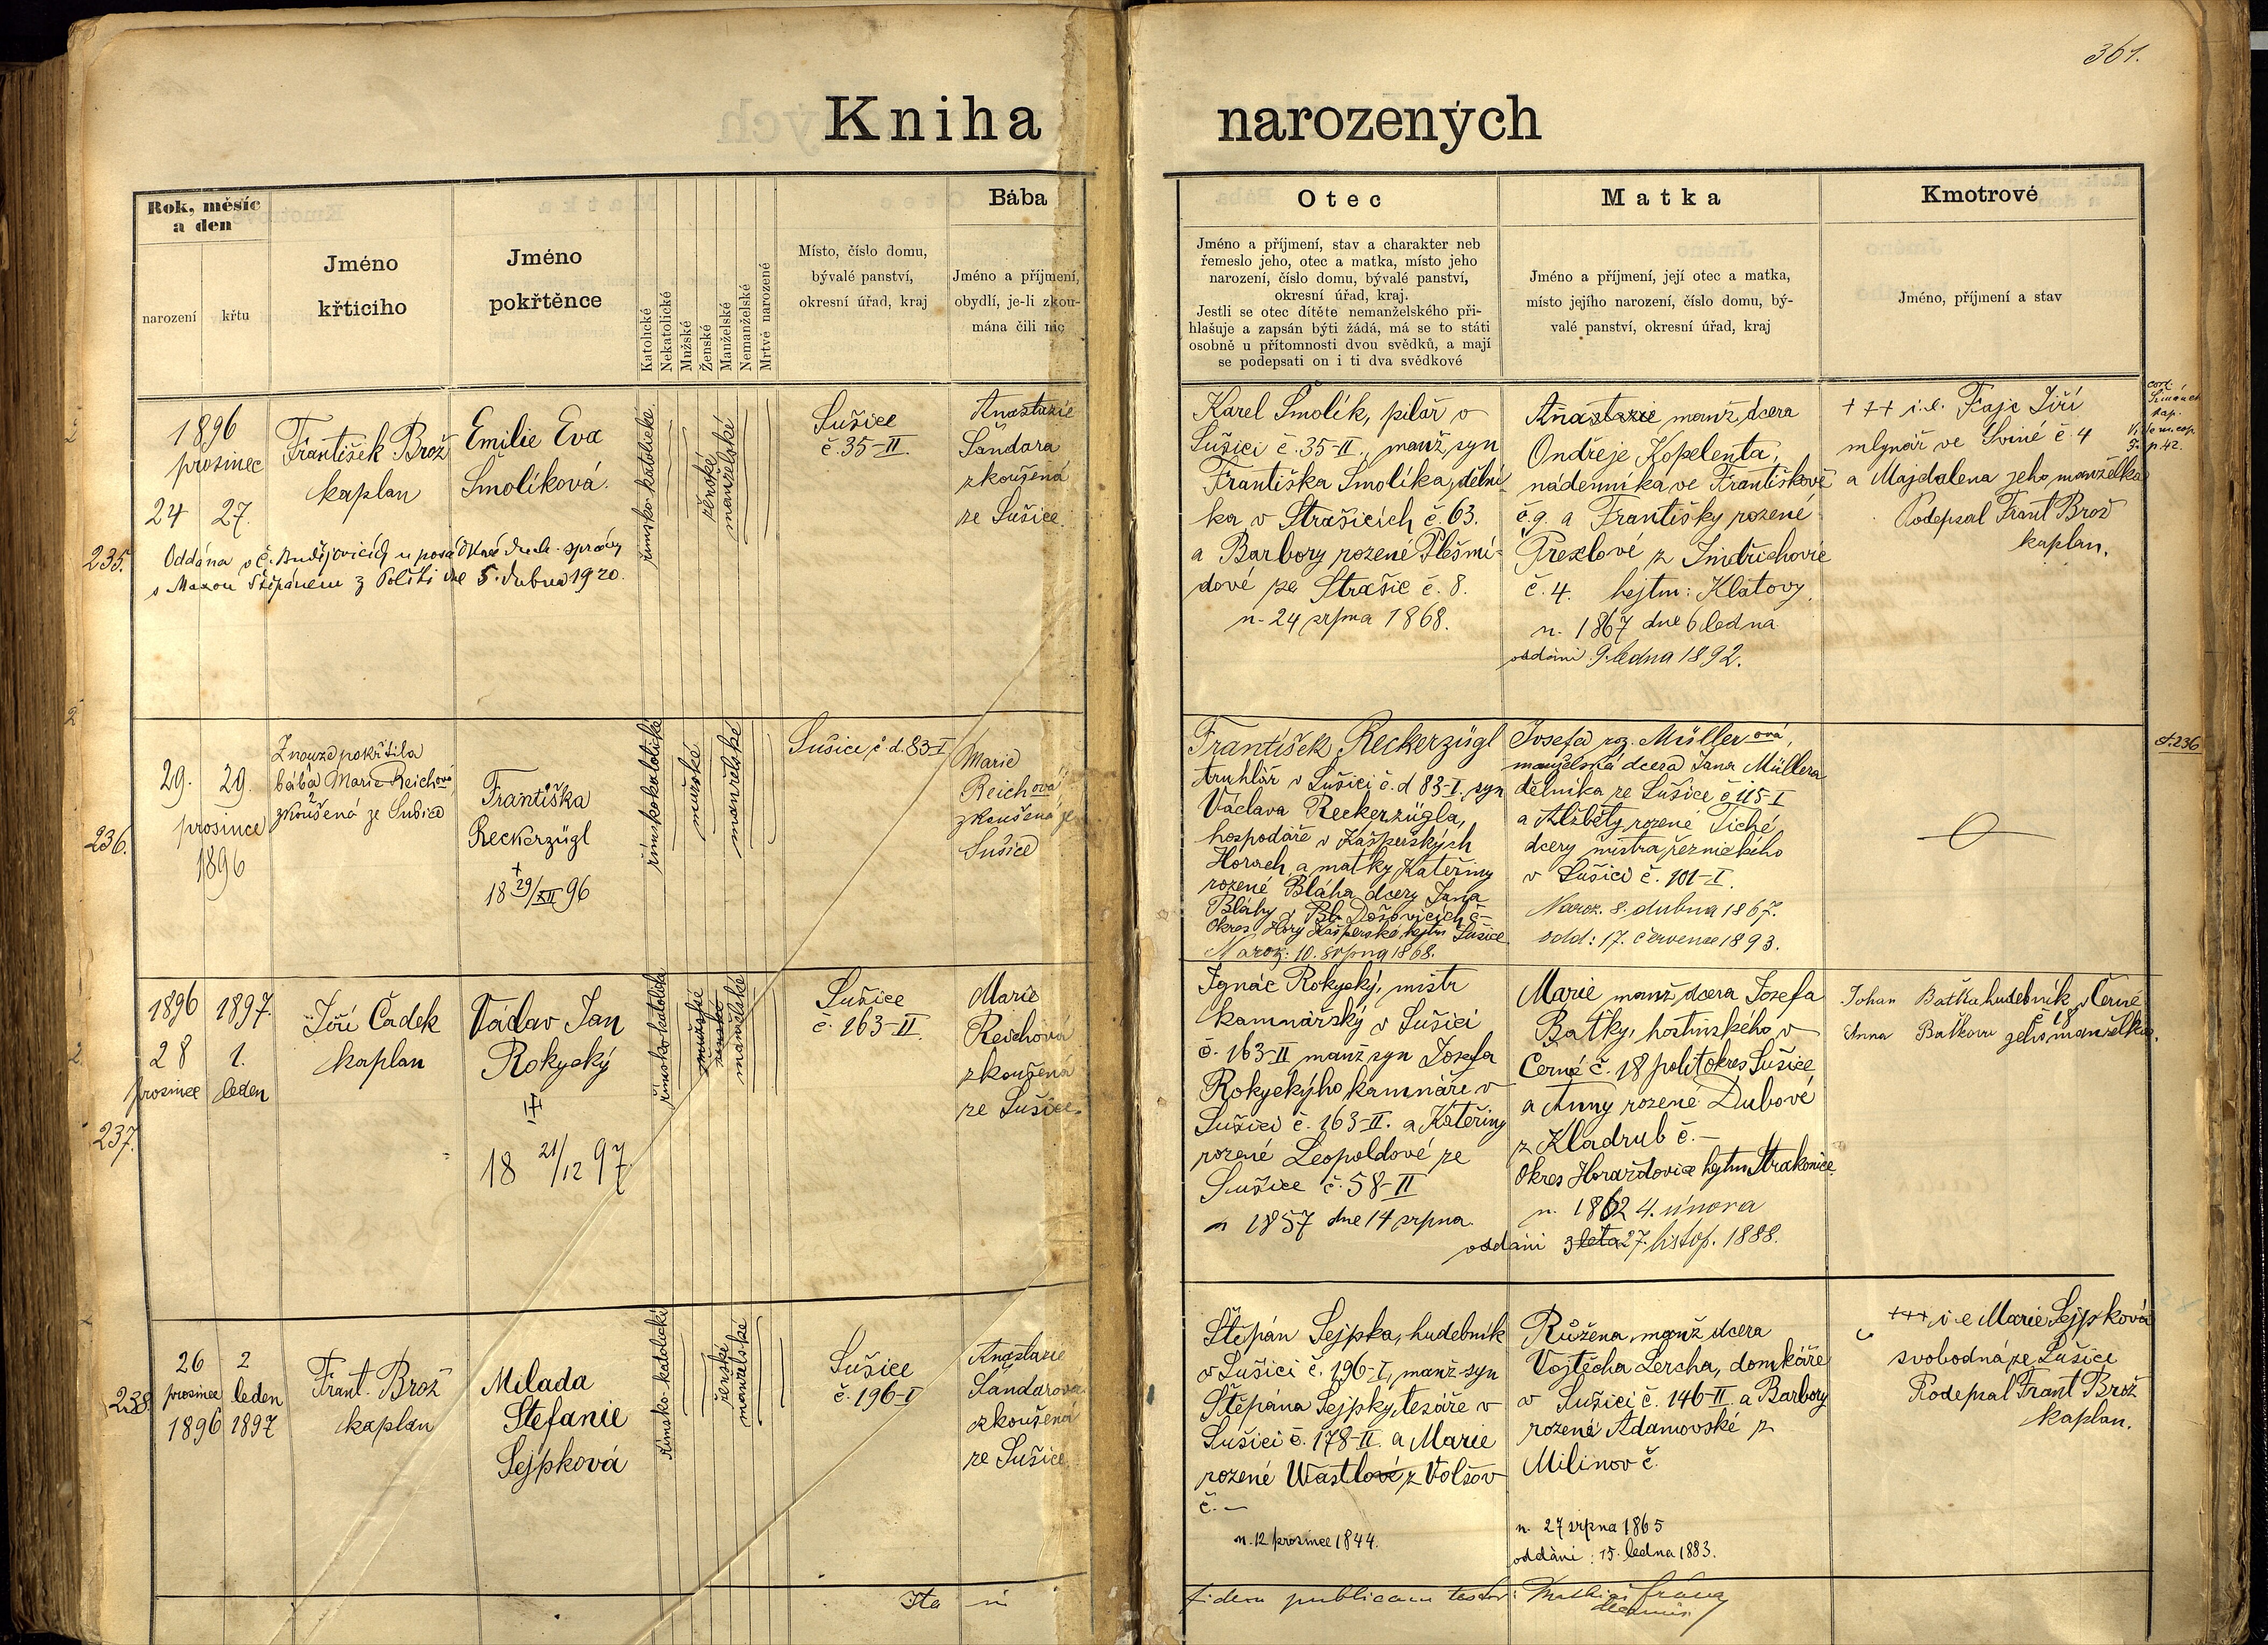 361.
Kniha narozených
Rok, měsíc
a den
narození
křtu
Jméno
křticiho
Jméno
pokřtěnce
Katolické
Nekatolické
Mužské
Ženské
Manželské
Nemanželské
Mrtvě narozené
Místo, číslo domu,
bývalé panství,
okresní úřad, kraj
Bába
Jméno a příjmení,
obydlí, je-li zkou-
mána čili nic
Otec
Jméno a příjmení, stav a charakter neb
řemeslo jeho, otec a matka, místo jeho
narození, číslo domu, bývalé panství,
okresní úřad, kraj.
Jestli se otec dítěte nemanželského při-
hlašuje a zapsán býti žádá, má se to státi
osobně u přítomnosti dvou svědků, a mají
se podepsati on i ti dva svědkové
Matka
Jméno a příjmení, její otec a matka,
místo jejího narození, číslo domu, bý-
valé panství, okresní úřad, kraj
Kmotrové
Jméno, příjmení a stav
235.
1896
prosinec
24 27.
František Brož
kaplan
Emilie Eva
Smolíková.
Oddána v č. Budějovicích u posádkové duch. správy
s Maxou Štěpánem z Poříčí dne 5. dubna 1920.
římsko-katolické
ženské
manželské
Sušice
č. 35-II.
Anastazie
Šandara
zkoušená
ze Sušice.
Karel Smolík, pilař v
Sušici č. 35-II., manž. syn
Františka Smolíka, dělní-
ka v Strašicích č. 63.
a Barbory rozené
dové ze Strašic č. 8.
n. 24 srpna 1868.
Anastazie manž. dcera
Ondřeje Kopelenta,
nádenníka ve Františkově
č. 9. a Františky rozené
z Jindřichovic
č. 4. hejtm: Klatovy.
n. 1867 dne 6 ledna
oddáni 9. ledna 1892.
+++ i.e. Fajc Jiří
mlynář ve Sviné č 4
a Majdalena jeho manželka
Podepsal Frant Brož
kaplan.
236.
29. 29.
prosince
1896
Z nouze pokřtila
bába Marie Reichová
zkoušená ze Sušice
Františka
Reckerzügl
+
18 29/XII 96
římskokatolické
mužské
manželské
Sušice, č. d. 83-I
Marie
Reichová
zkoušená ze
Sušice
František Reckerzügl
truhlář v Sušici č. d 83-I., syn
Václava Reckerzügla,
hospodáře v Kašperských
Horách, a matky Kateřiny
rozené Bláha dcery Jana
Bláhy v
okres Hory Kašperské hejtm Sušice
Naroz: 10. srpna 1868.
Josefa roz. Müllerová,
manželská dcera Jana Müllera
dělníka ze Sušice č 115-I
a Alžběty rozené Tiché,
dcery mistra řeznického
v Sušici č. 101-I.
Naroz. 8. dubna 1867.
odd: 17. července 1893.
č. 236
237.
1896 1897.
28 1.
prosince leden
Jiří Čadek
kaplan
Václav Jan
Rokycký
18 21/12 97
římskokatolické
mužské
ženské
manželské
Sušice
č. 163-II.
Marie
Reichová
zkoušená
ze Sušice.
Ignác Rokycký, mistr
kamnářský v Sušici
č. 163-II manž syn Josefa
Rokyckýho, kamnáře v
Sušici č. 163-II. a Kateřiny
rozené Leopoldové ze
Sušice č. 58-II
n 1857 dne 14 srpna.
Marie manž. dcera Josefa
Baťky, hostinského v
Černé č. 18 polit okres Sušice
a Anny rozené Dubové
z Kladrub č. —
okres Horažďovice hejtm Strakonice
n. 1862 4. února
oddáni 3 leta 27. listop. 1888.
Johan Baťka hudebník v Černé
č 18
Anna Baťkova jeho manželka.
238.
26 2
prosince leden
1896 1897
Frant. Brož
kaplan
Milada
Štefanie
Sejpková
římsko-katolické
ženské
manželské
Sušice
č. 196-I
Anastazie
Šandarová
zkoušená
ze Sušice.
Štěpán Sejpka, hudebník
v Sušici č. 196-I, manž. syn
Štěpána Sejpky, tesáře v
Sušici č. 178-II. a Marie
rozené Wastlové z Volšov
č. —
n. 12 prosince 1844.
Růžena, manž dcera
Vojtěcha Lercha, domkáře
v Sušici č. 146-II. a Barbory
rozené Adamovské z
Milinov č.
n. 27 srpna 1865
oddáni: 15. ledna 1883.
+++ i e Marie Sejpková
svobodná ze Sušice
Podepsal Frant Brož
kaplan.
Ita in fidem publicam testor: